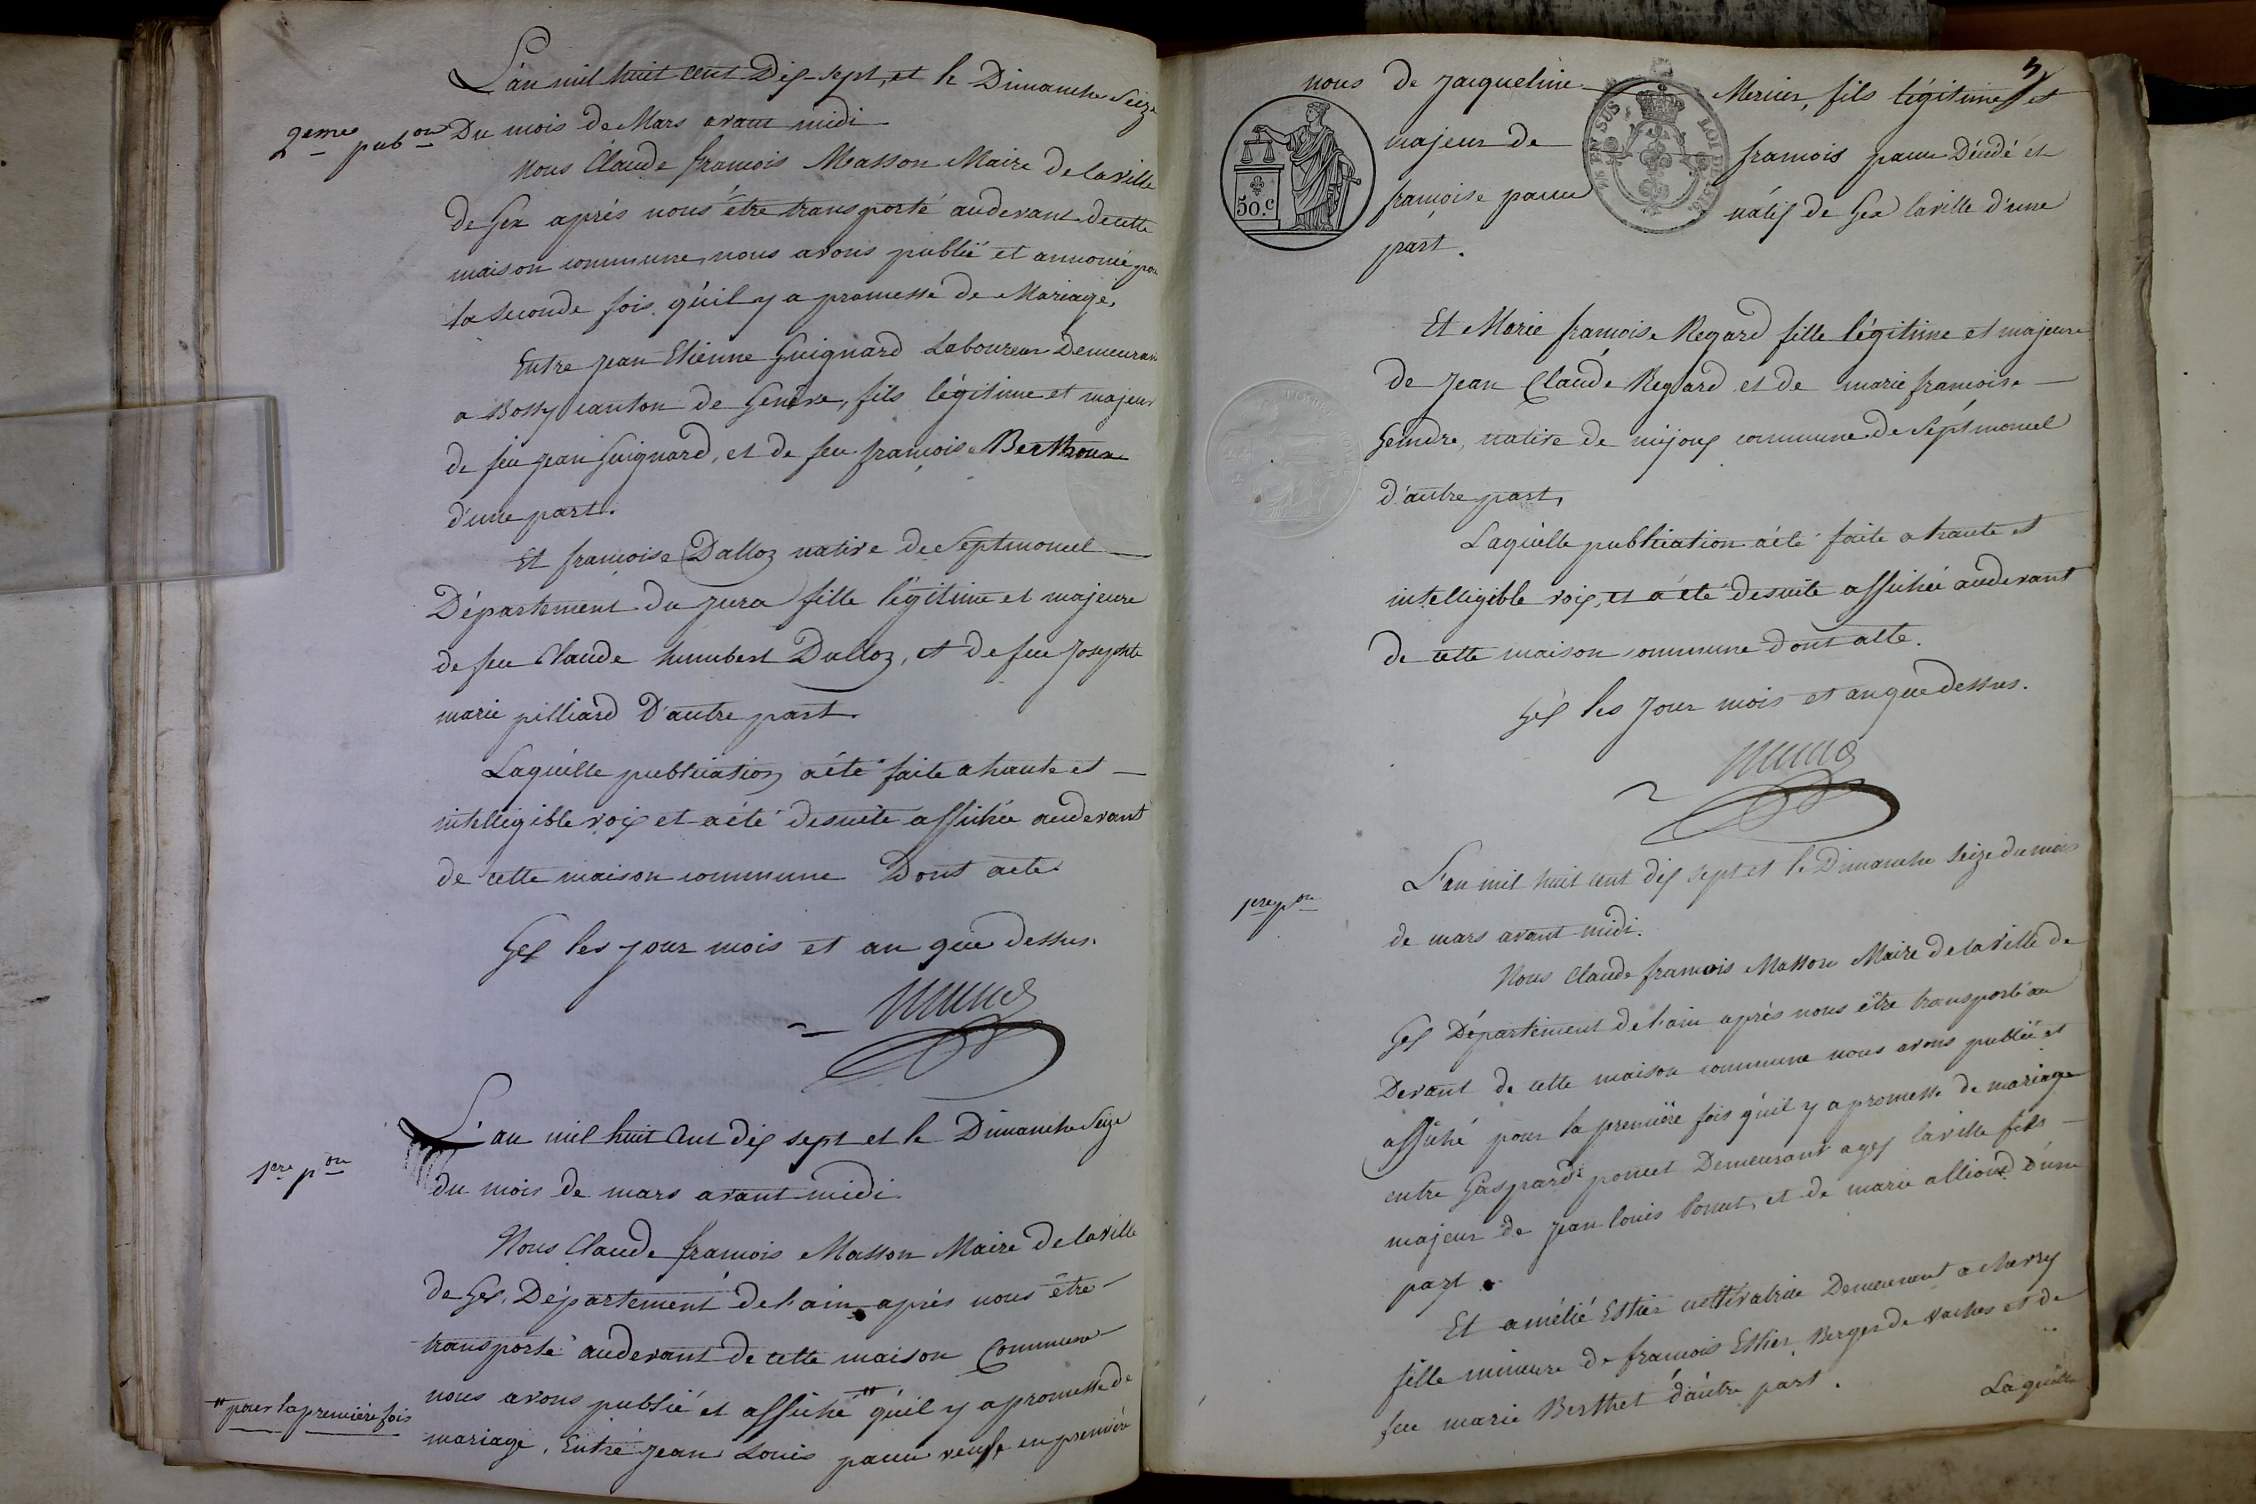 L'an mil huit cent Dix sept, et le Dimanche Seize
2eme pubon Du mois de Mars avant midi
Nous Claude françois Masson Maire de la ville
de Gex aprés nous être transporté audevant de cette
maison commune, nous avons publié et annoncé pour
la seconde fois, qu'il y a promesse de Mariage,
Entre Jean Etienne Guignard Laboureur Demeurant
a Bossy canton de Genève, fils légitime et majeur
de feu Jean Guignard, et de feu françoise Berthoux
d'une part.
Et françoise Dalloz native de Septmoncel
Département du Jura fille légitime et majeure
de feu Claude humbert Dalloz, et de feue Josephte
marie pilliard D'autre part.
Laquelle publication a été faite a haute et
intelligible voix et a été desuite affichée audevant
de cette maison commune Dont acte
Gex les jour mois et an que dessus.
L'an mil huit cent dix sept et le Dimanche Seize
1ere pon
du mois de mars avant midi
Nous Claude françois Masson Maire de la ville
de Gex, Département de l'ain aprés nous être
transporté audevant de cette maison Commune
nous avons publié et affiché " qu'il y a promesse de
" pour la première fois
mariage, Entre Jean Louis panu veuf en première
5
nous de Jacqueline Mercier, fils légitime et
majeur de françois panu Décédé et
françoise panu natif de Gex la ville d'une
part.
50.c
EN SUS LOI DE 1816
Et Marie françoise Regard fille légitime et majeure
de Jean Claude Regard et de marie francoise
Gendre, native de mijoux commune de Septmoncel
d'autre part,
Laquelle publication a été faite a haute et
intelligible voix, et a été desuite affichée audevant
de cette maison commune dont acte.
Gex les jour mois et an que dessus.
L'an mil huit cent dix sept et le Dimanche seize du mois
1ere pon
de mars avant midi.
Nous Claude francois Masson Maire de la ville de
Gex Département de l'ain aprés nous être transporté au
Devant de cette maison commune nous avons publié et
affiché pour la première fois qu'il y a promesse de mariage
entre Gaspard poncet Demeurant a gex la ville fils
majeur de Jean louis Poncet, et de marie alliod d'une
part.
Et amélié Esthier cultivatrice Demeurant a chevry
fille mineure de francois Esthier, Berger de vaches et de
feu marie Berthet d'autre part.
Laquelle